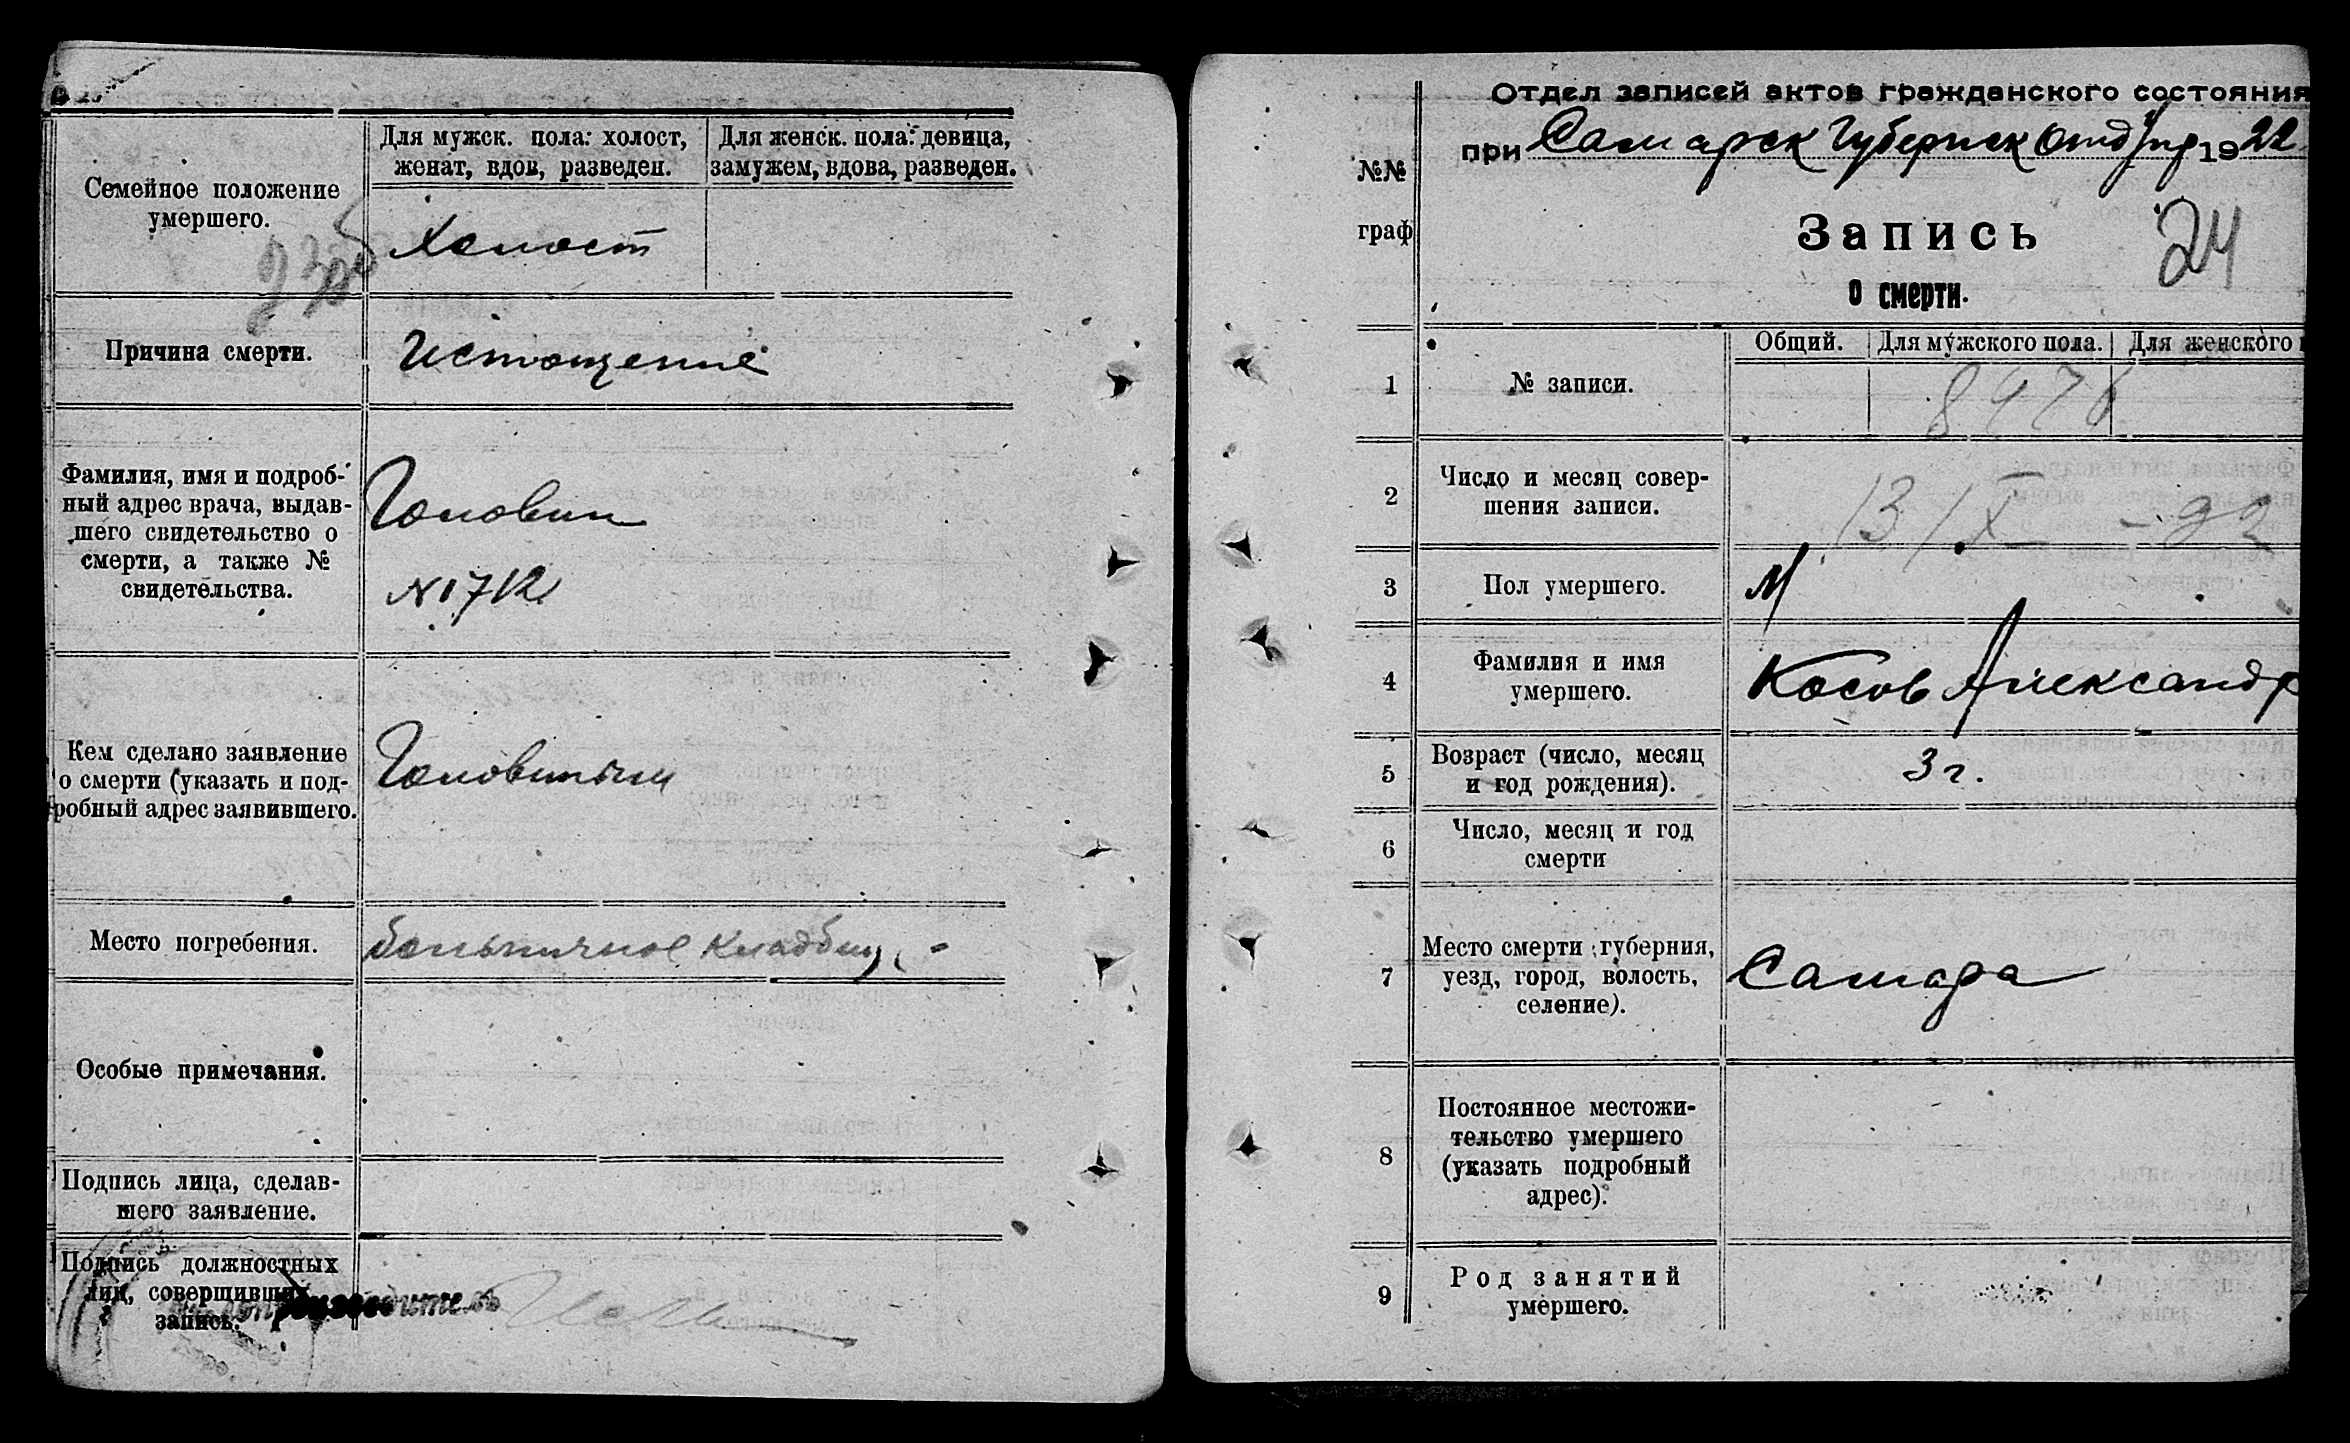 Семейное положение
умершего.
Для мужск. пола: холост,
женат, вдов, разведен.
Для женск. пола: девица,
замужем, вдова, разведен.
Холост
Причина смерти.
Истощение
Фамилия, имя и подроб-
ный адрес врача, выдав-
шего свидетельство о
смерти, а также №
свидетельства.
Головин
№ 1712
Кем сделано заявление
о смерти (указать и под-
робный адрес заявившего.
Головиным
Место погребения.
больничное кладбищ
Особые примечания.
Подпись лица, сделав-
шего заявление.
Подпись должностных
лиц, совершивших
запись.
Отдел записей актов гражданского состояния
при Самарск Губернск Отд Упр 1922
№№
граф
Запись
24
о смерти.
Общий.
Для мужского пола.
Для женского
1
№ записи.
8476
2
Число и месяц совер-
шения записи.
13/X - 22
3
Пол умершего.
М
4
Фамилия и имя
умершего.
Косов Александр
5
Возраст (число, месяц
и год рождения).
3 г.
6
Число, месяц и год
смерти
7
Место смерти (губерния,
уезд, город, волость,
селение).
Самара
8
Постоянное местожи-
тельство умершего
(указать подробный
адрес).
9
Род занятий
умершего.